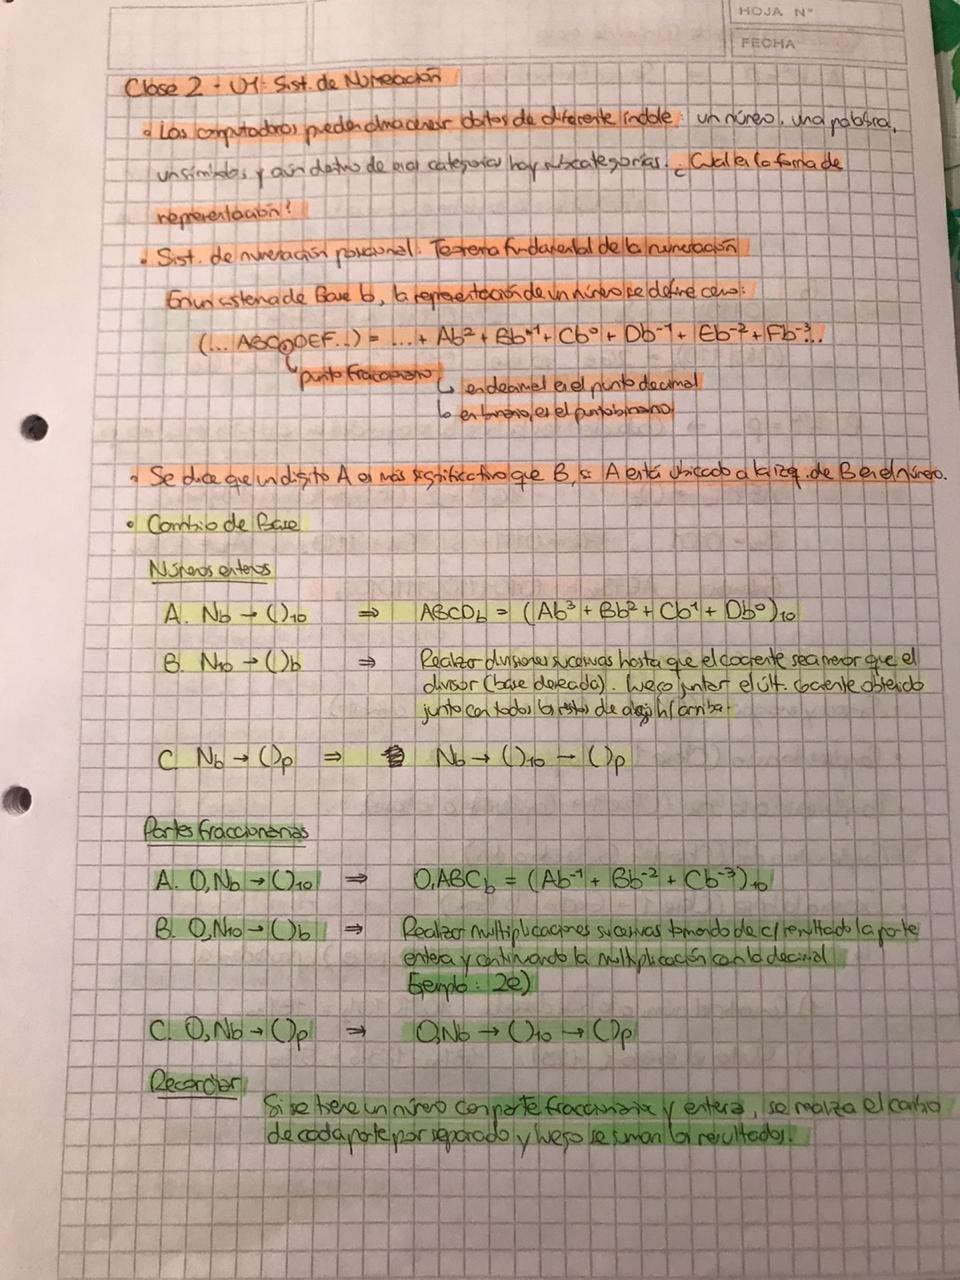 HOJA N°
FECHA
Clase 2 - U1: Sist. de Numeración
• Las computadoras pueden almacenar datos de diferente índole: un número, una palabra,
un símbolo, y aún dentro de esas categorías hay subcategorías. ¿Cuál es la forma de
representación?
• Sist. de numeración posicional: Teorema fundamental de la numeración
En un sistema de Base b, la representación de un número se define como:
(... ABC.DEF...) = ... + Ab² + Bb⁺¹ + Cb⁰ + Db⁻¹ + Eb⁻² + Fb⁻³...
punto fraccionario ↳ en decimal es el punto decimal
↳ en binario, es el punto binario
• Se dice que un dígito A es más significativo que B, si A está ubicado a la izq. de B en el número.
• Cambio de Base
Números enteros
A. Nb → ()₁₀ ⇒ ABCDb = (Ab³ + Bb² + Cb¹ + Db⁰)₁₀
B. N₁₀ → ()b ⇒ Realizar divisiones sucesivas hasta que el cociente sea menor que el
divisor (base deseada). Luego juntar el últ. cociente obtenido
junto con todos los restos de abajo h/ arriba.
C. Nb → ()p ⇒ Nb → ()₁₀ → ()p
Partes fraccionarias
A. 0,Nb → ()₁₀ ⇒ 0,ABCb = (Ab⁻¹ + Bb⁻² + Cb⁻³)₁₀
B. 0,N₁₀ → ()b ⇒ Realizar multiplicaciones sucesivas tomando de c/ resultado la parte
entera y continuando la multiplicación con la decimal
Ejemplo: 2e)
C. 0,Nb → ()p ⇒ 0,Nb → ()₁₀ → ()p
Recordar
Si se tiene un número con parte fraccionaria y entera, se realiza el cambio
de cada parte por separado y luego se suman los resultados.